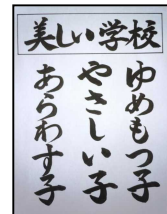 美しい学校
ゆめもつ子
やさしい子
あらわす子